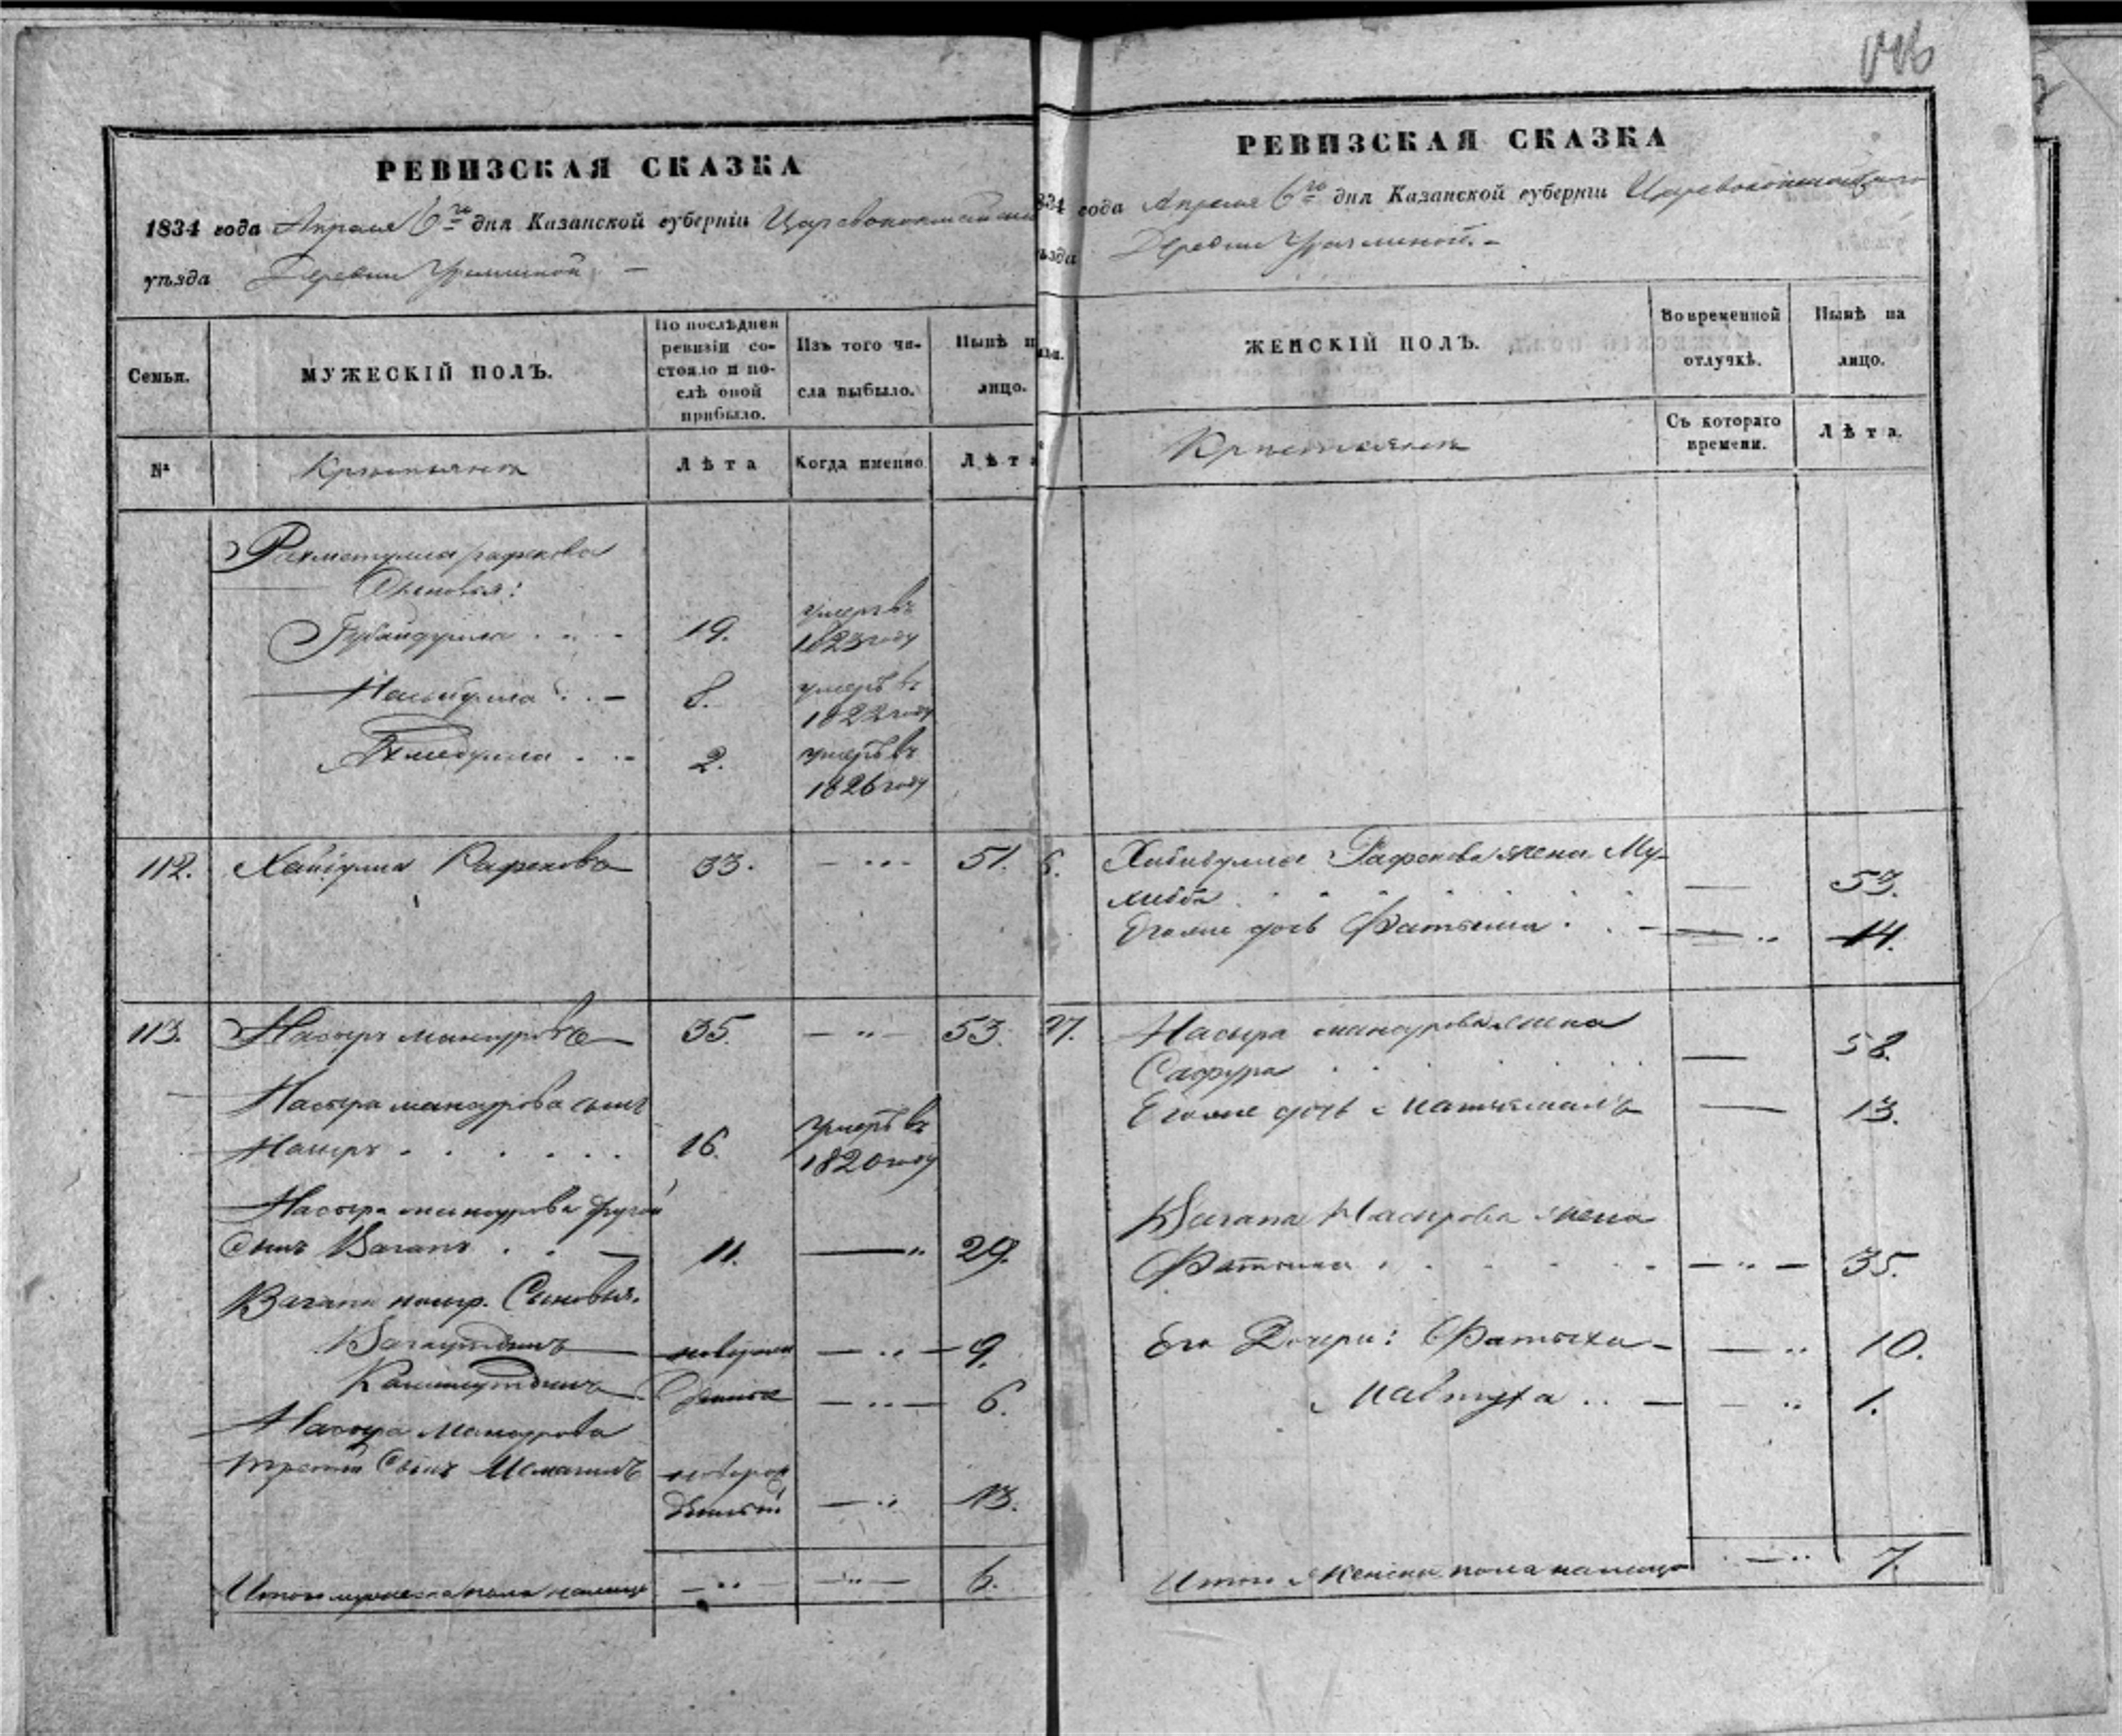 РЕВИЗСКАЯ СКАЗКА
1834 года Апреля 6го дня Казанской губерніи Царевококшайскаго
уѣзда Деревни
Семьи.
МУЖЕСКІЙ ПОЛЪ.
По послѣдней
ревизіи со-
стояло и по-
слѣ оной
прибыло.
Изъ того чи-
сла выбыло.
Нынѣ н
лицо.
№
Крестьянъ
Лѣта
Когда именно
Лѣта
Рахматулла Рафикова
Сыновья:
Губайдулла 19. умеръ въ
1823 году
8. умеръ въ
1822 году
2. умеръ въ
1826 году
112. Рафиковъ 33. 51.
113. Насыръ Мансуровъ 35. 53.
Насыра Мансурова сынъ
16. умеръ въ
1820 году
Насыра Мансурова другой
сынъ Вагапъ 11. 29.
Вагапа Насыр. Сыновья.
Вагаутдинъ новорож 9.
дены 6.
Насыра Мансурова
третій Сынъ Исмагилъ новорож
денный 13.
Итого мужеска пола налицо 6.
РЕВИЗСКАЯ СКАЗКА
834 года Апреля 6го дня Казанской губерніи Царевококшайскаго
уѣзда Деревни
ЖЕНСКІЙ ПОЛЪ.
Во временной
отлучкѣ.
Нынѣ на
лицо.
Крестьянъ
Съ котораго
времени.
Лѣта.
Хабибулла Рафикова жена Му-
53.
Его же дочь Фатыма 14.
Насыра Мансурова жена
Сафура 58.
Его же дочь 13.
Вагапа Насырова жена
Фатыма 35.
Его Дочери: Фатыха 10.
1.
Итого женска пола налицо 7.